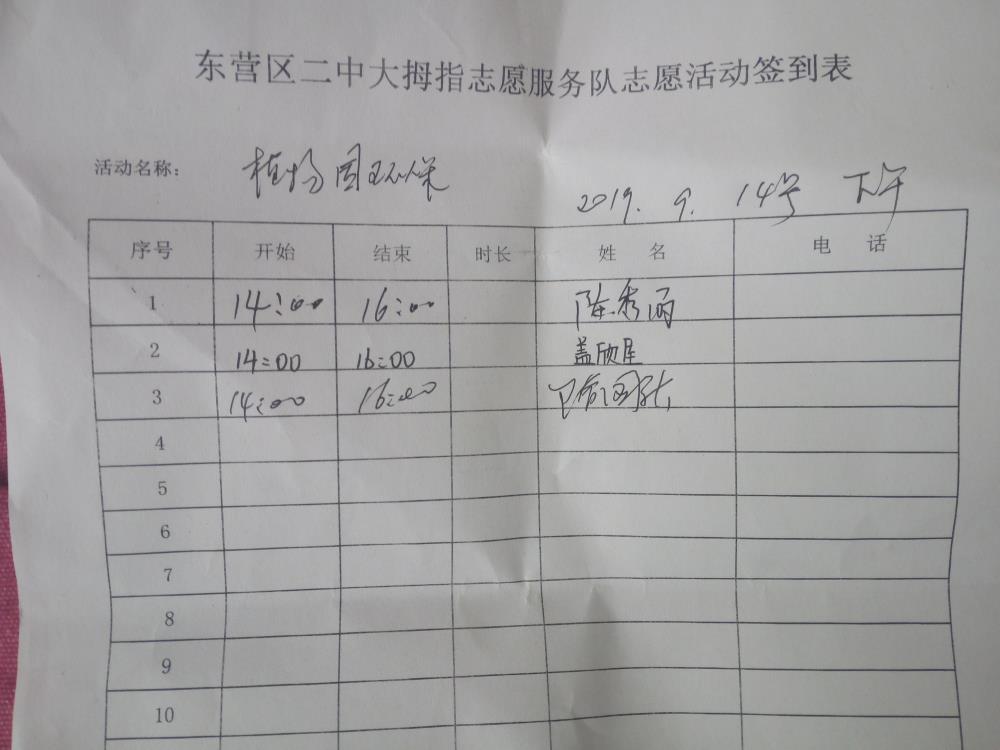 东营区二中大拇指志愿服务队志愿活动签到表
活动名称： 植物园环保
2019. 9. 14号 下午
序号 开始 结束 时长 姓名 电话
1 14:00 16:00 陈秀雨
2 14:00 16:00 盖欣星
3 14:00 16:00
4
5
6
7
8
9
10